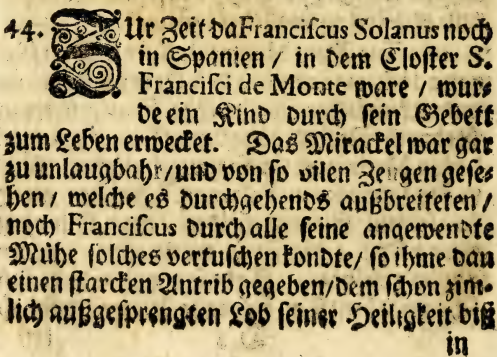 44. ZUr Zeit da Franciscus Solanus noch
in Spanien / in dem Closter S.
Francisci de Monte ware / wur-
de ein Kind durch sein Gebett
zum Leben erwecket. Das Mirackel war gar
zu unlaugbahr / und von so vilen Zeugen gese-
hen / welche es durchgehends außbreiteten /
noch Franciscus durch alle seine angewendte
Mühe solches vertuschen kondte / so ihme dan
einen starcken Antrib gegeben / dem schon zim-
lich außgesprengten Lob seiner Heiligkeit biß
in